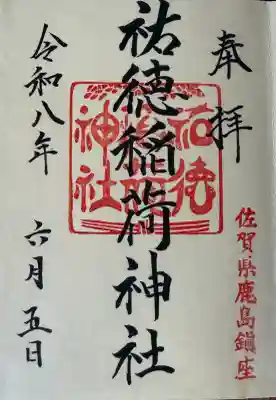 奉拝
佐賀県鹿島鎮座
祐徳稲荷神社
祐徳
稲荷
神社
令和八年
六月五日